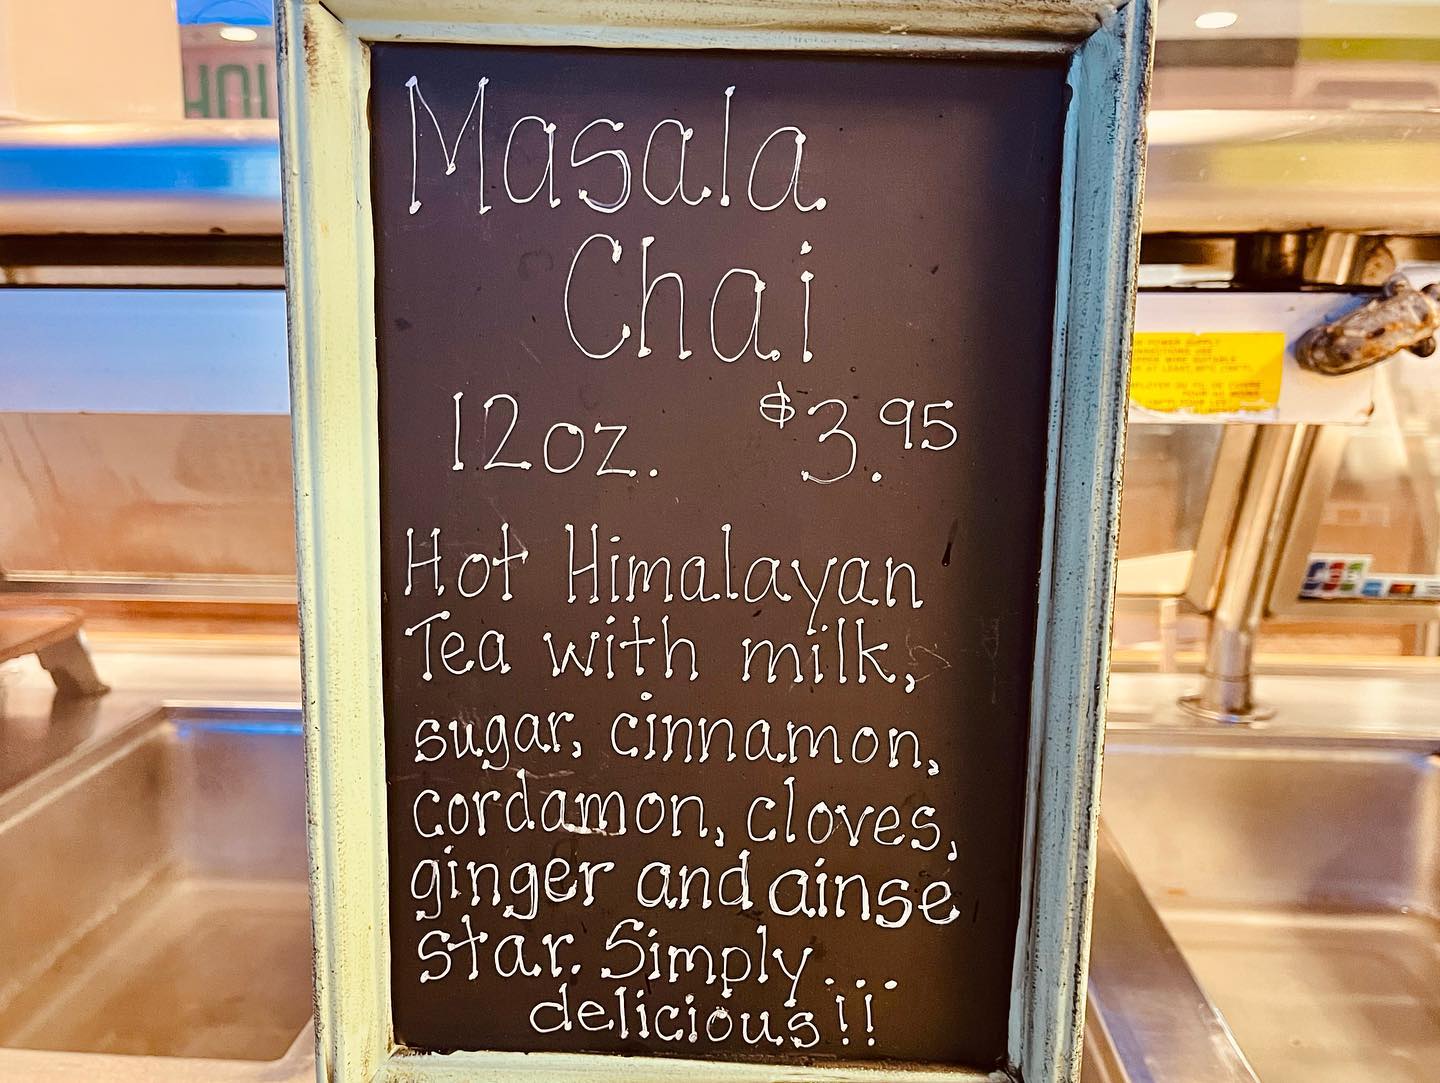 Masala
Chai
12oz. $3.95
Hot Himalayan
Tea with milk,
sugar, cinnamon,
cordamon, cloves,
ginger and ainse
star. Simply...
delicious!!
JCB